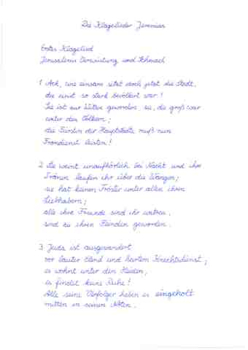 Die Klagelieder Jeremias
Erstes Klagelied
Jerusalems Verwüstung und Schmach
1 Ach, wie einsam sitzt doch jetzt die Stadt,
die einst so stark bevölkert war!
Sie ist zur Witwe geworden, sie, die groß war
unter den Völkern;
die Fürstin der Hauptstädte muß nun
Frondienst leisten!
2 Sie weint unaufhörlich bei Nacht und ihre
Tränen laufen ihr über die Wangen;
sie hat keinen Tröster unter allen ihren
Liebhabern;
alle ihre Freunde sind ihr untreu,
sind zu ihren Feinden geworden.
3 Juda ist ausgewandert
vor lauter Elend und hartem Knechtsdienst;
es wohnt unter den Heiden,
es findet keine Ruhe!
Alle seine Verfolger haben es eingeholt
mitten in seinen Nöten.